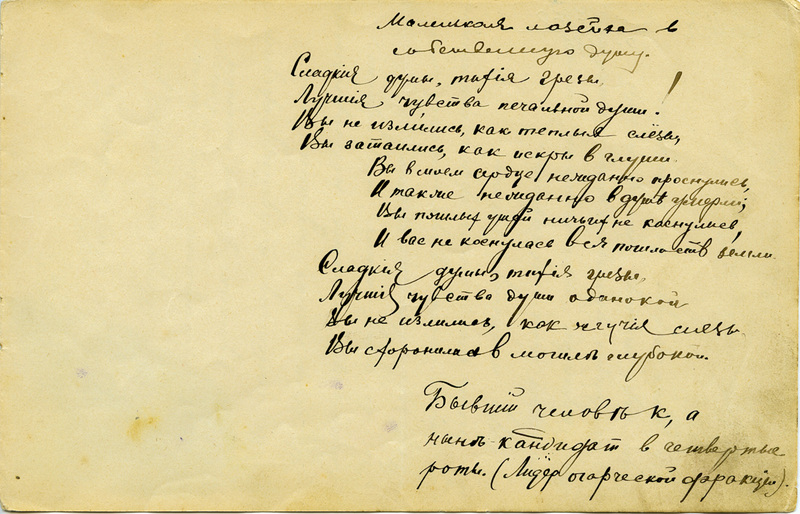 Маленькая лазейка в
собственную душу.
Сладкія думы, тихія грезы
Лучшія чувства печальной души!
Вы не излились, какъ теплыя слёзы,
Вы затаились, как искры в глуши.
Вы в моем сердце нежданно проснулись,
И также нежданно в душѣ умерли;
Вы пошлых ушей ничьих не коснулись,
И вас не коснулась вся пошлость земли.
Сладкія думы, тихія грезы
Лучшія чувства души одинокой
Вы не излились, как жгучія слезы
Вы схоронились в могилѣ глубокой.
Бывший человѣк, а
нынѣ кандидат в четвертые
роты. (Лидер огарческой фракции).